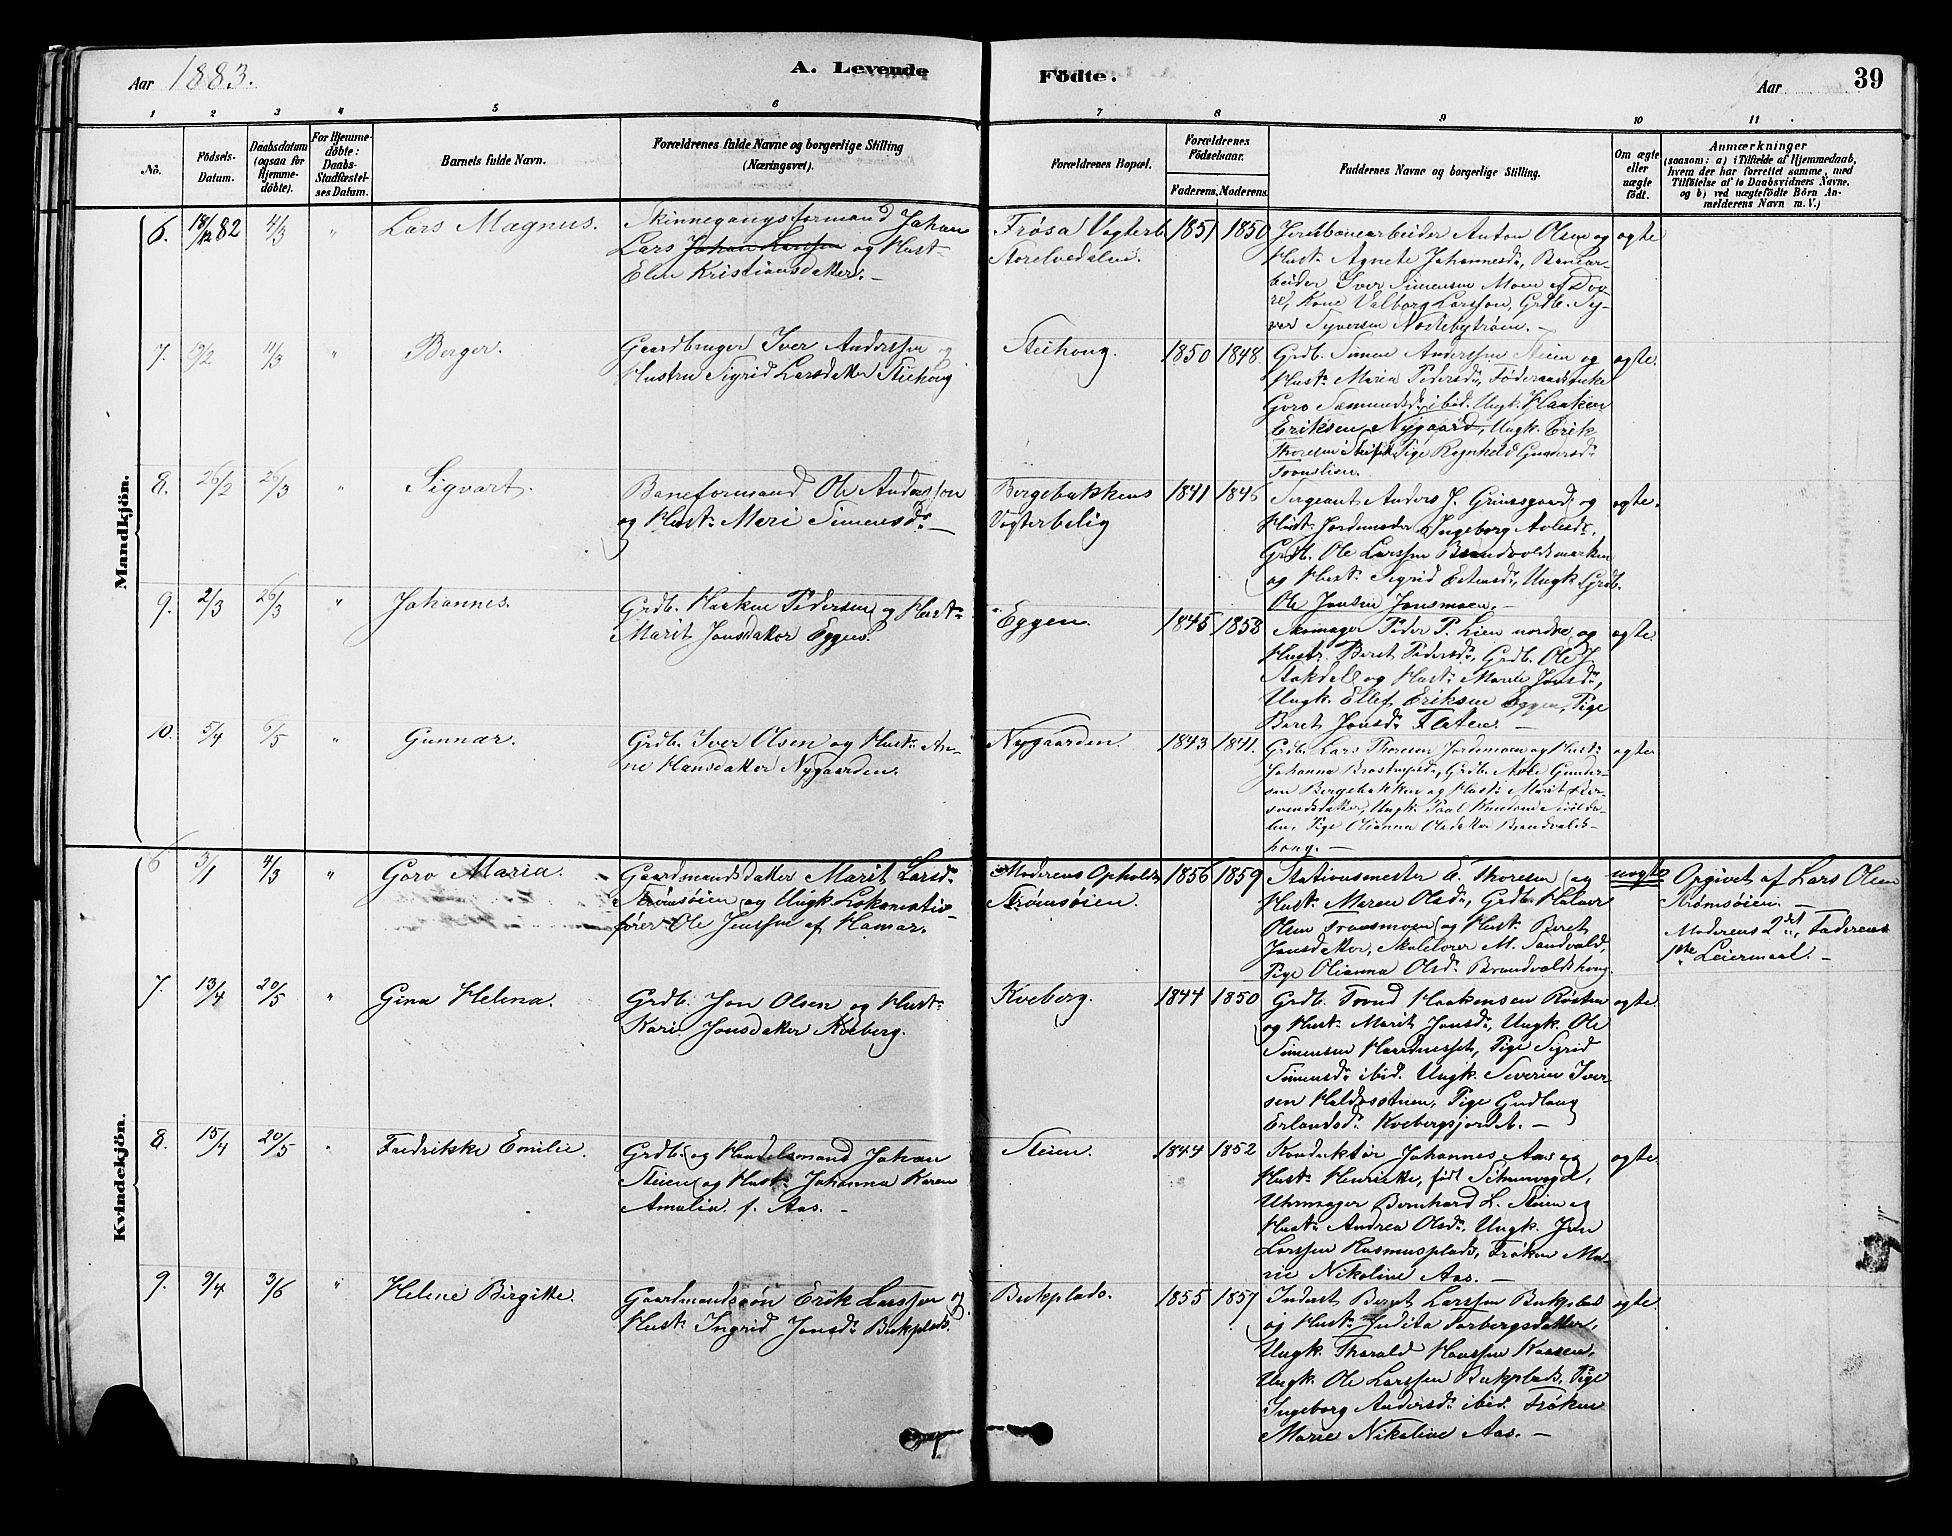 Aar 1883.
A. Levende
Fødte.
Aar
39
1 2 3 4 5 6 7 8 9 10 11
No.
Fødsels-
Datum.
Daabsdatum
(ogsaa for
Hjemme-
døbte).
For Hjemme-
døbte:
Daabs-
Stadfæstel-
ses Datum.
Barnets fulde Navn.
Forældrenes fulde Navne og borgerlige Stilling
(Næringsvei).
Forældrenes Bopæl.
Forældrenes
Fødselsaar.
Faderens. Moderens.
Faddernes Navne og borgerlige Stilling.
Om ægte
eller
uægte
født.
Anmærkninger
(saasom: a) i Tilfælde af Hjemmedaab,
hvem der har forrettet samme, med
Tilføielse af to Daabsvidners Navne,
og b) ved uægtefødte Børn An-
melderens Navn m. V.)
Mandkjön.
6. 18/12 82 4/3 " Lars Magnus.
Skinnegangsformand Johan
Lars Johan Larssen og Hust
Elin Kristiansdatter. —
Frøsa Vogterb.
1851 1850
Jernbanearbeider Anton Olsen og
Hust. Agnete Johannesd., Banear-
beider Iver Simensen Moen af Dov
re, Kone Valborg Larssen, Grdb. Sy-
ver Syversen Nostebytrøen. —
ægte
7. 19/2 4/3 " Berger.
Gaardbruger Iver Anderssen og
Hustru Sigrid Larsdatter Steihong
Steihong.
1850 1848
Grdb. Simen Anderssen Steien og
Hust. Maria Pedersd.,
Goro Sæmundsd. ibid. Ungk. Haaken
Eriksen Nygaard, Ungk. Erik
Thoresen Pige Ragnhild Gundersd.
Tronslien.
ægte.
8. 26/2 26/3 " Sigvart.
Baneformand Ole Anderssen
og Hust. Meri Simensd. —
Bergebakkens
Vogterbolig
1841 1846
Sergeant Anders J. Grimsgaard og
Hust. Jordemoder Ingeborg Avlesd.,
Grdb. Ole Larssen Brandvoldsmarken
og Hust. Sigrid Estensd., Ungk. Grdb.
Ole Jonsen Jonsmoen. —
ægte.
9. 2/3 26/3 " Johannes.
Grdb. Haaken Pedersen og Hust.
Marit Jonsdatter Eggen.
Eggen.
1845 1858
Skomager Peder P. Lien nordre og
Hustr. Beret Pedersd., Grdb. Ole J.
Stokdal og Hust. Marie Jonsd.,
Ungk. Ellef Eriksen Eggen, Pige
Beret Jonsd. Flaten. —
ægte.
10. 5/4 6/5 " Gunnar.
Grdb. Iver Olsen og Hust. An-
ne Hansdatter Nygaarden.
Nygaarden.
1843 1841.
Grdb. Lars Thoresen Jordemoen og Hust.
Johanna Grdb. Avle Gunder-
sen Bergebakken og Hust. Marit
Ungk. Paal Knudsen
Pige Olianna Olsdatter Brandvolds-
hong. —
ægte
Kvindekjön.
6 3/1 4/3 " Goro Maria.
Gaardmandsdatter Marit Larsd.
Strømsøien og Ungk. Lokomotiv-
fører Ole Jenssen af Hamar.
Moderens Ophold
Strømsøien.
1856 1859
Stationsmester E. Thoresen og
Hust. Maren Olsd., Grdb. Halvor
Olsen Tronsmoen og Hust. Beret
Jonsdatter, Skolelærer M. Sandvold,
Pige Olianna Olsd. Brandvoldshong.
uægte
Opgivet af Lars Olsen
Strømsøien. —
Moderens 2det, Faderens
1ste Leiermaal. —
7. 13/4 20/5 " Gina Helena.
Grdb. Jon Olsen og Hust.
Kari Jonsdatter Kveberg.
Kveberg.
1844 1850
Grdb. Trond Haakensen Røsten
og Hust. Marit Jonsd., Ungk. Ole
Simensen Haardnesset, Pige Sigrid
Simensd. ibid. Ungk. Severin Iver-
sen Haldosstuen, Pige Gudlaug
Erlandsd. Kvebergsjordet. —
ægte.
8. 15/4 20/5 " Fredrikke Emilie.
Grdb. og Handelsmand Johan
Steien og Hust. Johanna Karen
Amalia f. Aas. —
Steien.
1844 1852
Konduktør Johannes Aas og
Hust. Henrikke, født
Uhrmager Bernhard L. Steien og
Hust. Andrea Olsd., Ungk. Jon
Larssen Rasmusplads, Frøken Ma-
rie Nikoline Aas. —
ægte.
9. 9/4 3/6 " Helene Birgitte.
Gaardmandssøn Erik Larssen og
Hust. Ingrid Jonsd. Bukplads.
Bukplads.
1855 1857
Inderst Bernt Larssen Bukplads
og Hust. Judita Torbergsdatter,
Ungk. Tharald Hanssen Kaasen,
Ungk. Ole Larssen Bukplads, Pige
Ingeborg Andersd. ibid. Frøken
Marie Nikoline Aas. —
ægte